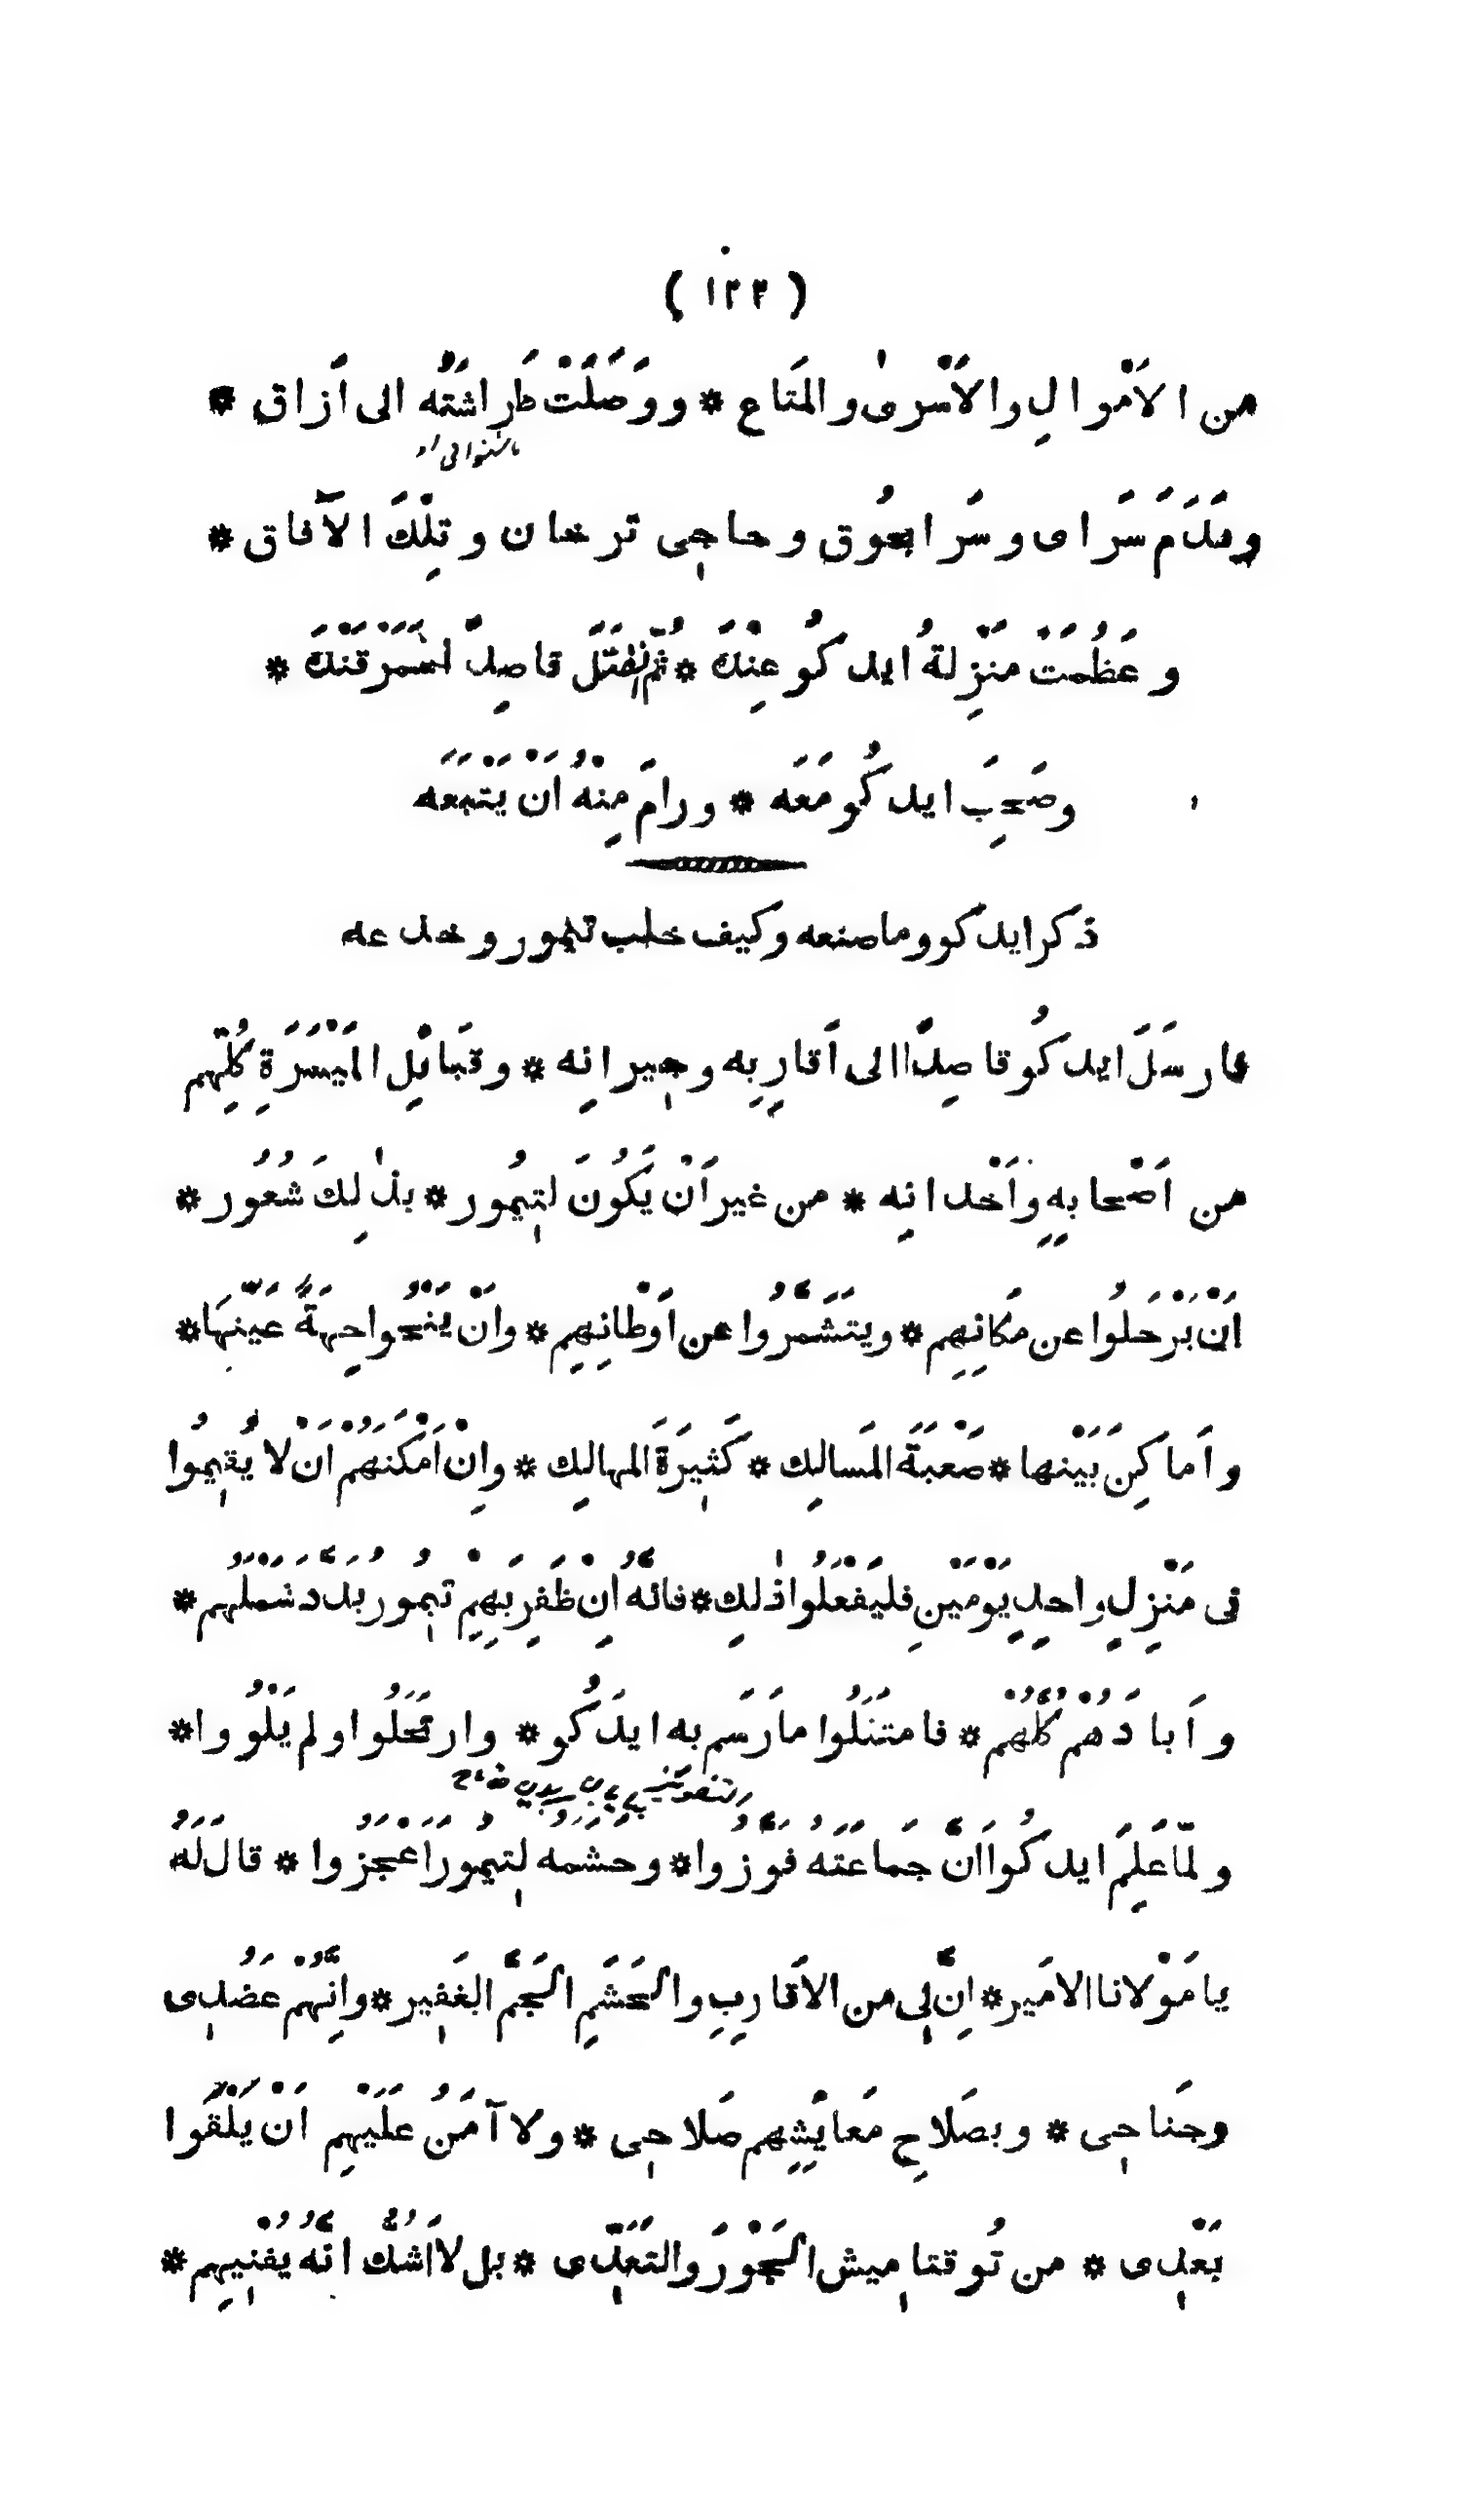 ( ١٢٣ )
من الاَمْوالِ والاَسْرىٰ والمَتاع * ووَصَلَتْ طَراشَتُه الى اَزاق *
وهَدَمَ سَراى وسَرايجُوق وحاجِى ترخان وتِلْكَ الآفاق *
وعَظُمَتْ مَنْزِلةُ ايدكُو عِنْدَه * ثُمَّ انفَتَلَ قاصِداً سَمَرْقَنْدَه *
وصَحِبَ ايدكُو مَعَه * ورامَ مِنْهُ اَنْ يَتْبَعَه
ذكر ايدكو وما صنعه وكيف خلب تيمور وخدعه
فارسَلَ ايدكُو قاصِداً الى اَقارِبِه وجِيرانِه * وقَبائِلِ المَيْسَرَةِ كُلِّهِم
من اَصْحابِهِ واَخْدانِه * من غير اَنْ يَكُونَ لتِيمُور * بذٰلِكَ شُعُور *
اَنْ يَرْحَلُوا عن مَكانِهِم * ويتَشَمَّرُوا عن اَوْطانِهِم * واَنْ يَنْحُوا جِهَةً عَيَّنَها *
واَماكِنَ بَيَّنَها * صَعْبَةَ المَسالِك * كَثِيرَةَ المهالِك * واِنْ اَمْكَنَهُمْ اَنْ لا يُقِيمُوا
فى مَنْزِلٍ واحِدٍ يَوْمَيْنِ فليَفْعَلُوا ذٰلِك * فانَّهُ اِنْ ظَفِرَ بِهِمْ تِيمُور بَدَّدَ شَمْلَهُم *
واَبادَهُمْ كُلَّهُمْ * فامتثَلُوا ما رَسَم به ايدكُو * وارتَحَلُوا ولم يَلْوُوا *
ولمّا عَلِمَ ايدكُو اَنَّ جَماعَتَهُ فَوَّزُوا * وحَشَمَه لتِيمُورَ اَعْجَزُوا * قالَ لَهُ
يا مَوْلانا الامَير * اِنَّ لِى من الاَقارِبِ والحَشَمِ الجَمَّ الغَفِير * واِنَّهُمْ عَضُدِى
وجَناحِى * وبصَلاحِ مَعايِشِهِم صَلاحِى * ولا آمَنُ عَلَيْهِم اَنْ يَلْقَوْا
بَعْدِى * من تُوقتامِيش الجَوْرَ والتَعَدِّى * بل لا اَشُكُّ انَّه يُفْنِيهِم *